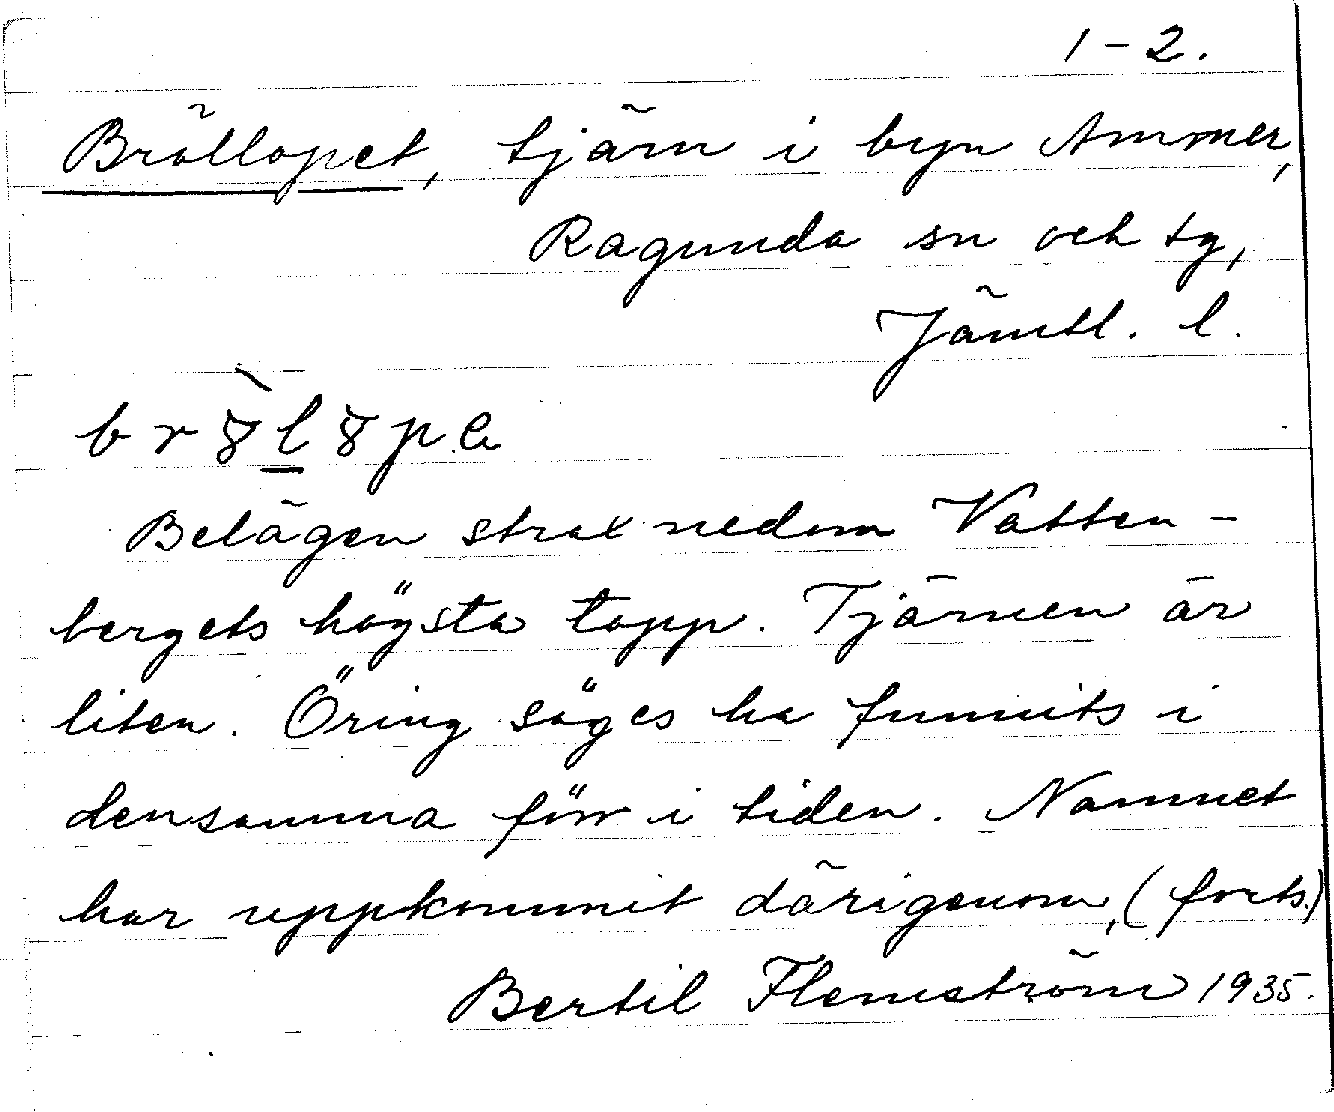 1-2.
Bröllopet, tjärn i byn Ammer,
Ragunda sn och tg,
Jämtl. l.
Belägen strax nedom Vatten-
bergets högsta topp. Tjärnen är
liten. Öring säges ha funnits i
densamma förr i tiden. Namnet
har uppkommit därigenom, (forts.)
Bertil Flemström 1935.